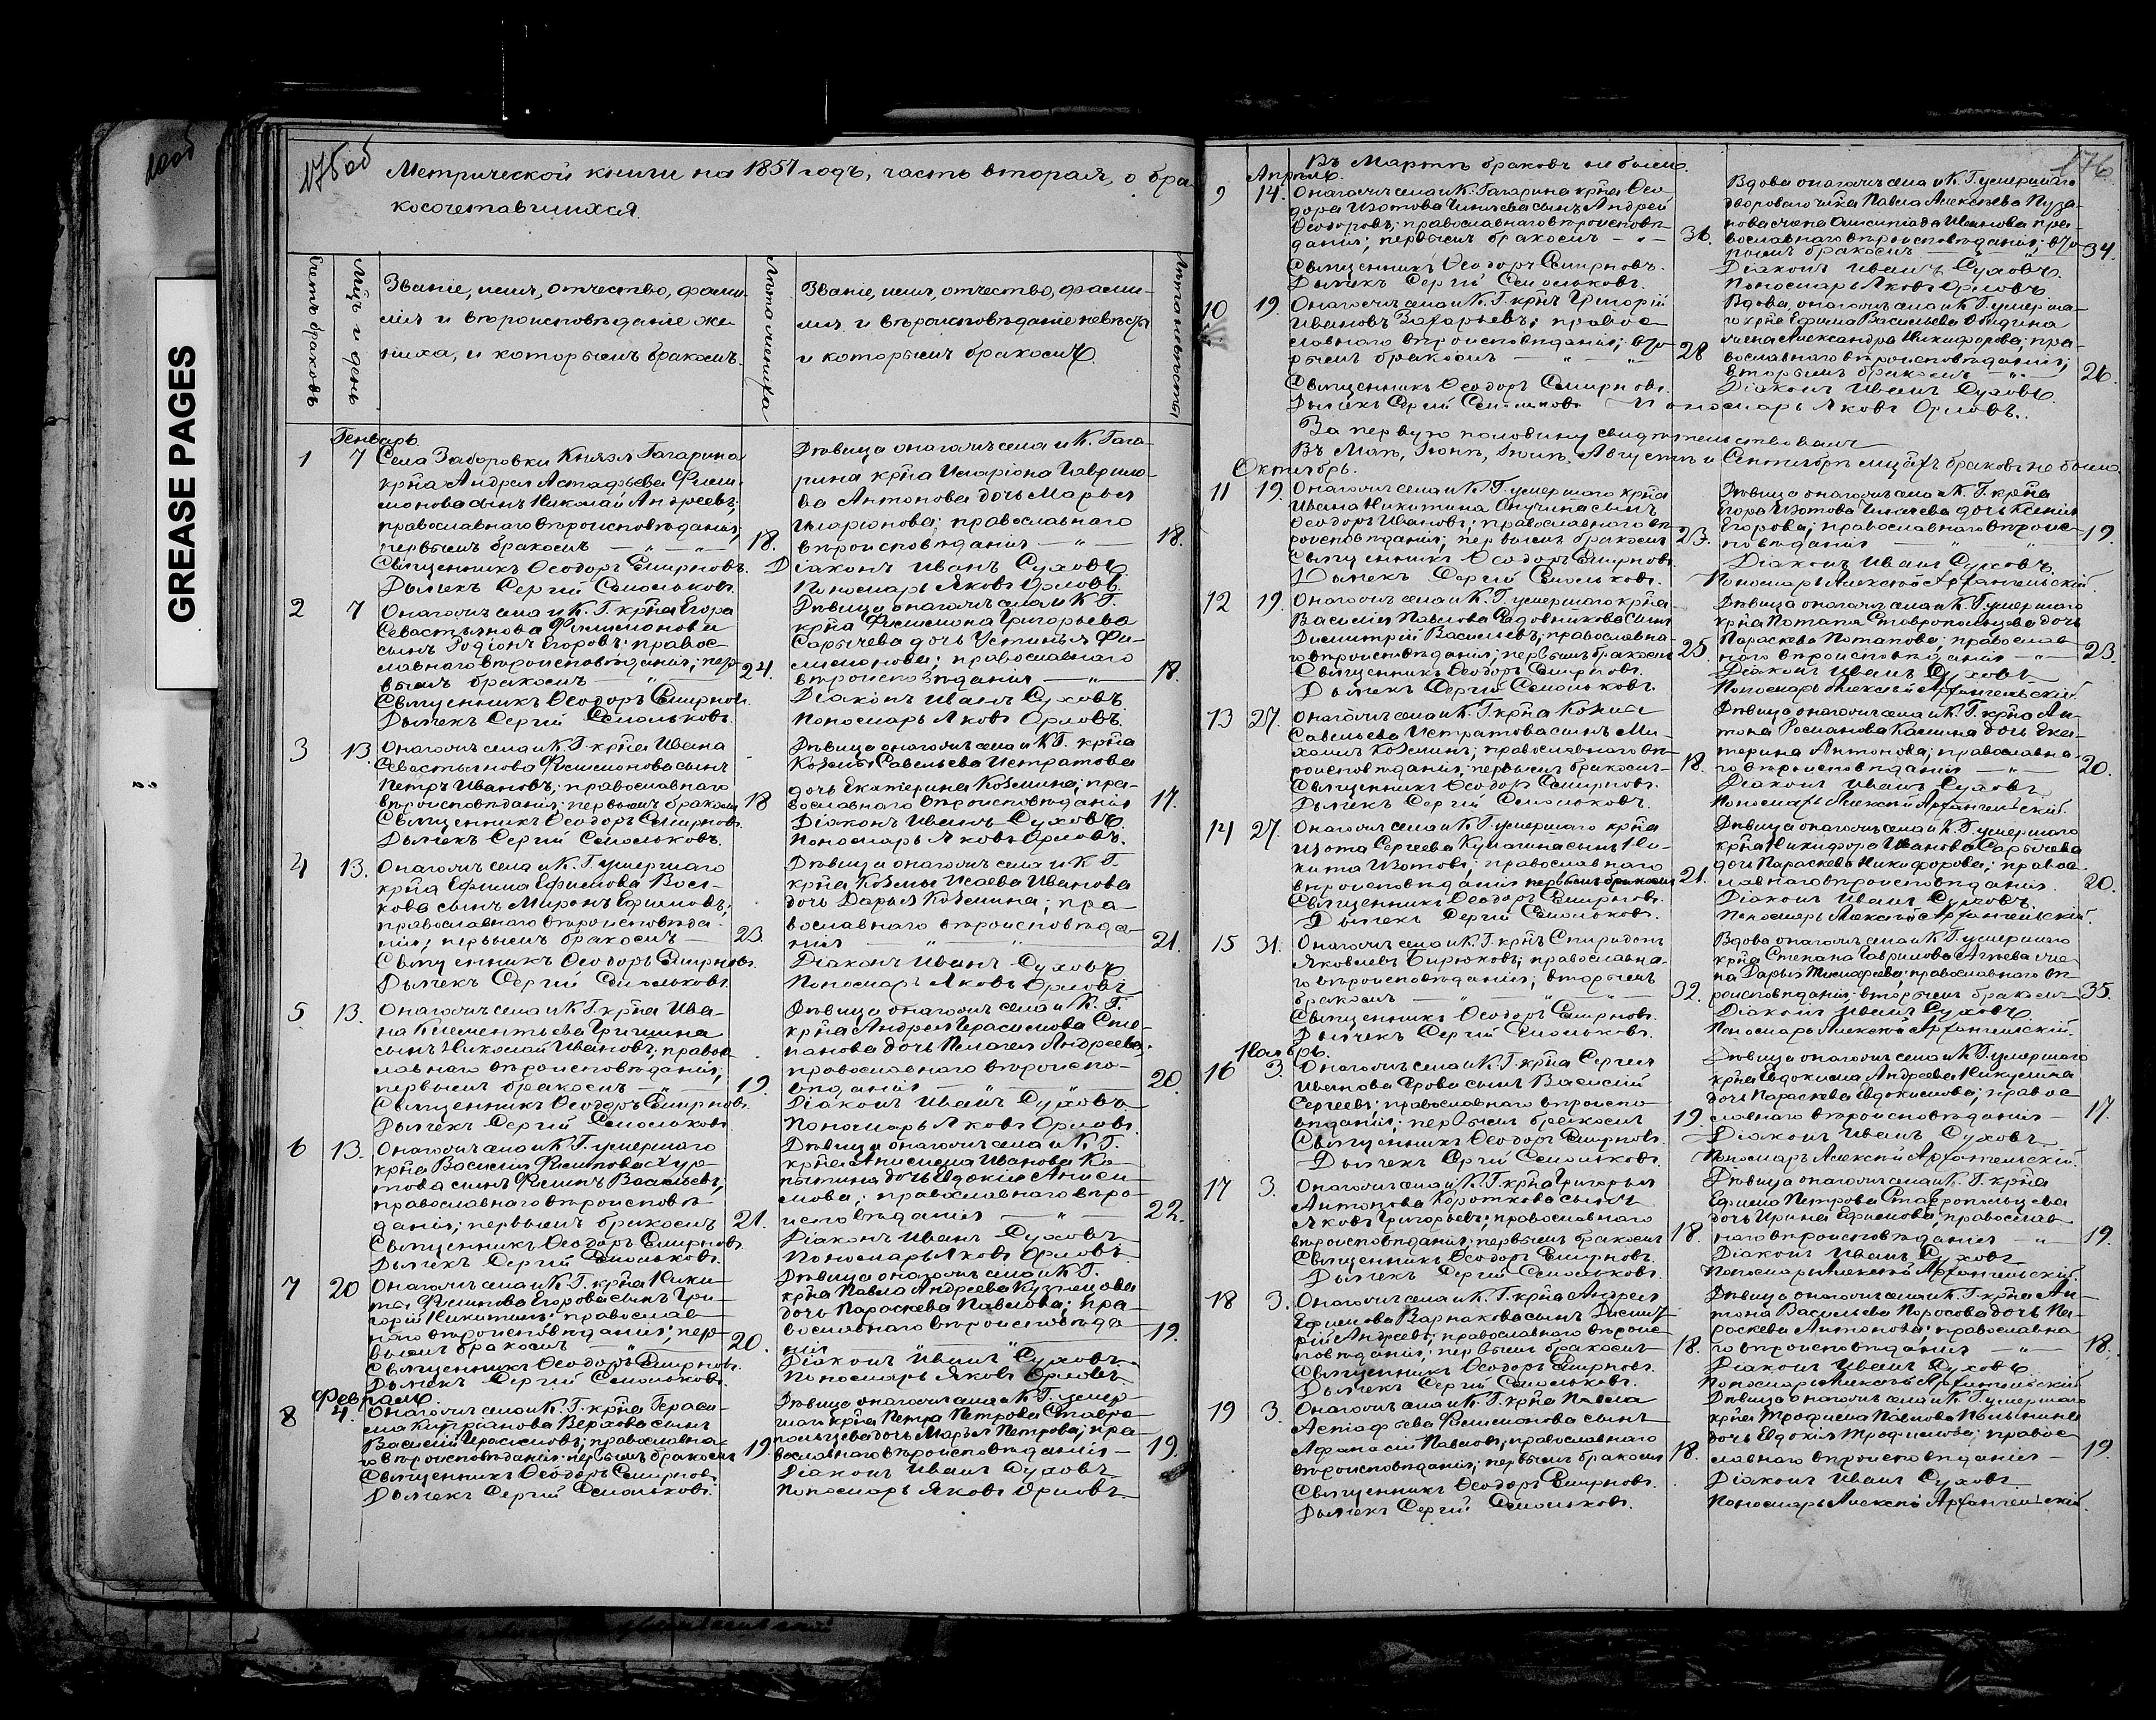 GREASE PAGES
175об
Метрической книги на 1857 годъ, часть вторая, о бра-
косочетавшихся.
Счетъ браковъ
Мцъ и день
Званіе, имя, отчество, фами-
лія и вѣроисповѣданіе же-
ниха, и которымъ бракомъ.
Лѣта жениха
Званіе, имя, отчество, фами-
лія и вѣроисповѣданіе невѣсты
и которымъ бракомъ.
Лѣта невѣсты
Генварь
1 7 Села Заборовки Князя Гагарина
крна Андрея Астафьева Фили-
монова сынъ Николай Андреевъ;
православнаго вѣроисповѣданія;
первымъ бракомъ 18.
Священникъ Ѳеодоръ Смирновъ.
Дьячекъ Сергій Смольковъ.
Дѣвица онагожъ села и К. Гага-
рина крна Иларіона Гаврило-
ва Антонова дочь Марья
Иларіонова; православнаго
вѣроисповѣданія 18.
Діаконъ Иванъ Суховъ.
Пономарь Яковъ Орловъ.
2 7 Онагожъ села и К. Г. крна Егора
Севастьянова Филимонова
сынъ Родіонъ Егоровъ; правос-
лавнаго вѣроисповѣданія; пер-
вымъ бракомъ 24.
Священникъ Ѳеодоръ Смирновъ.
Дьячекъ Сергій Смольковъ.
Дѣвица онагожъ села и К. Г.
крна Филимона Григорьева
Сарычева дочь Устинья Фи-
лимонова; православнаго
вѣроисповѣданія 18.
Діаконъ Иванъ Суховъ.
Пономарь Яковъ Орловъ.
3 13. Онагожъ села и К. Г. крна Ивана
Севастьянова Филимонова сынъ
Петръ Ивановъ; православнаго
вѣроисповѣданія; первымъ бракомъ 18
Священникъ Ѳеодоръ Смирновъ.
Дьячекъ Сергій Смольковъ.
Дѣвица онагожъ села и К. Г. крна
Козмы Савельева Истратова
дочь Екатерина Козмина; пра-
вославнаго вѣроисповѣданія 17.
Діаконъ Иванъ Суховъ.
Пономарь Яковъ Орловъ.
4 13. Онагожъ села и К. Г. умершаго
крна Ефима Ефимова
сынъ Миронъ Ефимовъ;
православнаго вѣроисповѣда-
нія; первымъ бракомъ 23.
Священникъ Ѳеодоръ Смирновъ.
Дьячекъ Сергій Смольковъ.
Дѣвица онагожъ села и К. Г.
крна Козмы Исаева Иванова
дочь Дарья Козмина; пра-
вославнаго вѣроисповѣда-
нія 21.
Діаконъ Иванъ Суховъ.
Пономарь Яковъ Орловъ.
5 13. Онагожъ села и К. Г. крна Ива-
на Клементьева Гришина
сынъ Николай Ивановъ; правос-
лавнаго вѣроисповѣданія;
первымъ бракомъ 19.
Священникъ Ѳеодоръ Смирновъ.
Дьячекъ Сергій Смольковъ.
Дѣвица онагожъ села и К. Г.
крна Андрея Герасимова Сте-
панова дочь Пелагея Андреева;
православнаго вѣроиспо-
вѣданія 20
Діаконъ Иванъ Суховъ.
Пономарь Яковъ Орловъ.
6 13. Онагожъ села и К. Г. умершаго
крна Василія Филипова
сынъ Филипъ Васильевъ;
православнаго вѣроисповѣ-
данія; первымъ бракомъ 21.
Священникъ Ѳеодоръ Смирновъ.
Дьячекъ Сергій Смольковъ.
Дѣвица онагожъ села и К. Г.
крна Анисима Иванова
дочь Евдокія Аниси-
мова; православнаго вѣро-
исповѣданія 22.
Діаконъ Иванъ Суховъ.
Пономарь Яковъ Орловъ.
7 20 Онагожъ села и К. Г. крна Ники-
ты Филипова Егорова сынъ Гри-
горій Никитинъ; православ-
наго вѣроисповѣданія; пер-
вымъ бракомъ 20.
Священникъ Ѳеодоръ Смирновъ.
Дьячекъ Сергій Смольковъ.
Дѣвица онагожъ села и К. Г.
крна Павла Андреева Кузнецова
дочь Параскева Павлова; пра-
вославнаго вѣроисповѣда-
нія 19.
Діаконъ Иванъ Суховъ.
Пономарь Яковъ Орловъ.
Февраль.
8 4. Онагожъ села и К. Г. крна Гераси-
ма Кипріанова Верхова сынъ
Василій Герасимовъ; православна-
го вѣроисповѣданія; первымъ бракомъ 19.
Священникъ Ѳеодоръ Смирновъ.
Дьячекъ Сергій Смольковъ.
Дѣвица онагожъ села и К. Г. умер-
шаго крна Петра Петрова Ставро-
польцева дочь Марья Петрова; пра-
вославнаго вѣроисповѣданія 19.
Діаконъ Иванъ Суховъ.
Пономарь Яковъ Орловъ.
176
Въ Мартѣ браковъ не было.
Апрѣль.
9 14. Онагожъ села и К. Гагарина крна Ѳео-
дора Изотова сынъ Андрей
Ѳеодоровъ; православнаго вѣроисповѣ-
данія; первымъ бракомъ 36.
Священникъ Ѳеодоръ Смирновъ.
Дьячекъ Сергій Смольковъ.
Вдова онагожъ села и К. Г. умершаго
двороваго чека Павла Алексѣева Пуза-
нова жена Иванова пра-
вославнаго вѣроисповѣданія; вто-
рымъ бракомъ 34.
Діаконъ Иванъ Суховъ.
Пономарь Яковъ Орловъ.
10 19. Онагожъ села и К. Г. крнъ Григорій
Ивановъ Захарьевъ; правос-
лавнаго вѣроисповѣданія; вто-
рымъ бракомъ 28
Священникъ Ѳеодоръ Смирновъ.
Дьячекъ Сергій Смольковъ.
Вдова, онагожъ села и К. Г. умерша-
го крна Ефима Васильева
жена Александра Никифорова; пра-
вославнаго вѣроисповѣданія;
вторымъ бракомъ 26.
Діаконъ Иванъ Суховъ.
Пономарь Яковъ Орловъ.
За первую половину свидѣтельствовали
Въ Маѣ, Іюнѣ, Іюлѣ, Августѣ и Сентябрѣ мцахъ браковъ не было.
Октябрь.
11 19. Онагожъ села и К. Г. умершаго крна
Ивана Никитина сынъ
Ѳеодоръ Ивановъ; православнаго вѣ-
роисповѣданія; первымъ бракомъ 23.
Священникъ Ѳеодоръ Смирновъ.
Дьячекъ Сергій Смольковъ.
Дѣвица онагожъ села и К. Г. крна
Егора Изотова дочь Ксенія
Егорова; православнаго вѣроис-
повѣданія 19.
Діаконъ Иванъ Суховъ.
Пономарь Алексѣй Архангельскій.
12 19. Онагожъ села и К. Г. умершаго крна
Василія Павлова Садовникова сынъ
Димитрій Васильевъ; православна-
го вѣроисповѣданія; первымъ бракомъ 25.
Священникъ Ѳеодоръ Смирновъ.
Дьячекъ Сергій Смольковъ.
Дѣвица онагожъ села и К. Г. умершаго
крна Потапа Ставропольцева дочь
Параскева Потапова; православ-
наго вѣроисповѣданія 23.
Діаконъ Иванъ Суховъ
Пономарь Алексѣй Архангельскій.
13 27. Онагожъ села и К. Г. крна Козмы
Савельева Истратова сынъ Ми-
хаилъ Козминъ; православнаго вѣ-
роисповѣданія; первымъ бракомъ 18.
Священникъ Ѳеодоръ Смирновъ.
Дьячекъ Сергій Смольковъ.
Дѣвица онагожъ села и К. Г. крна Ан-
тона Романова Калинина дочь Ека-
терина Антонова; православна-
го вѣроисповѣданія 20.
Діаконъ Иванъ Суховъ
Пономарь Алексѣй Архангельскій.
14 27. Онагожъ села и К. Г. умершаго крна
Изота Сергеева сынъ Ни-
кита Изотовъ; православнаго
вѣроисповѣданія первымъ бракомъ 21.
Священникъ Ѳеодоръ Смирновъ.
Дьячекъ Сергій Смольковъ.
Дѣвица онагожъ села и К. Г. умершаго
крна Никифора Иванова Сарычева
дочь Параскева Никифорова; правос-
лавнаго вѣроисповѣданія. 20.
Діаконъ Иванъ Суховъ.
Пономарь Алексѣй Архангельскій.
15 31. Онагожъ села и К. Г. крнъ Спиридонъ
Яковлевъ Бирюковъ; православна-
го вѣроисповѣданія; вторымъ
бракомъ 32.
Священникъ Ѳеодоръ Смирновъ.
Дьячекъ Сергій Смольковъ.
Вдова онагожъ села и К. Г. умершаго
крна Степана Гаврилова Агѣева же-
на Дарья Тимофеева; православнаго вѣ-
роисповѣданія; вторымъ бракомъ 35.
Діаконъ Иванъ Суховъ.
Пономарь Алексѣй Архангельскій.
Ноябрь.
16 3. Онагожъ села и К. Г. крна Сергея
Иванова сынъ Василій
Сергеевъ; православнаго вѣроиспо-
вѣданія; первымъ бракомъ 19.
Священникъ Ѳеодоръ Смирновъ.
Дьячекъ Сергій Смольковъ.
Дѣвица онагожъ села и К. Г. умершаго
крна Евдокима Андреева Никулина
дочь Параскева Евдокимова; правос-
лавнаго вѣроисповѣданія 17.
Діаконъ Иванъ Суховъ
Пономарь Алексѣй Архангельскій.
17 3. Онагожъ села и К. Г. крна Григорья
Антонова Короткова сынъ
Яковъ Григорьевъ; православнаго
вѣроисповѣданія; первымъ бракомъ 18.
Священникъ Ѳеодоръ Смирновъ.
Дьячекъ Сергій Смольковъ.
Дѣвица онагожъ села и К. Г. крна
Ефима Петрова Ставропольцева
дочь Ирина Ефимова; православ-
наго вѣроисповѣданія 19.
Діаконъ Иванъ Суховъ
Пономарь Алексѣй Архангельскій.
18 3. Онагожъ села и К. Г. крна Андрея
Ефимова Варнакова сынъ Димит-
рій Андреевъ; православнаго вѣроис-
повѣданія; первымъ бракомъ 18.
Священникъ Ѳеодоръ Смирновъ.
Дьячекъ Сергій Смольковъ.
Дѣвица онагожъ села и К. Г. крна Ан-
тона Васильева дочь Па-
раскева Антонова; православна-
го вѣроисповѣданія 18.
Діаконъ Иванъ Суховъ.
Пономарь Алексѣй Архангельскій
19 3. Онагожъ села и К. Г. крна Павла
Астафьева Филимонова сынъ
Афанасій Павловъ; православнаго
вѣроисповѣданія; первымъ бракомъ 18.
Священникъ Ѳеодоръ Смирновъ.
Дьячекъ Сергій Смольковъ.
Дѣвица онагожъ села и К. Г. умершаго
крна Трофима Павлова
дочь Евдокія Трофимова; правос-
лавнаго вѣроисповѣданія 19.
Діаконъ Иванъ Суховъ
Пономарь Алексѣй Архангельскій.